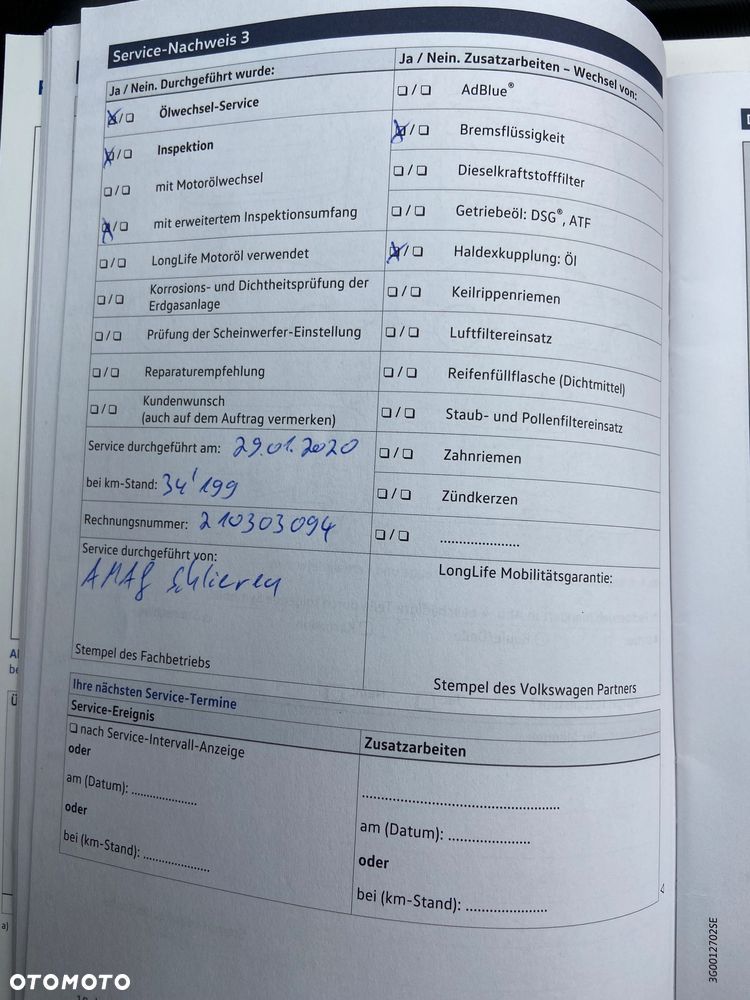 Service-Nachweis 3
Ja / Nein. Durchgeführt wurde:
☒/☐ Ölwechsel-Service
☒/☐ Inspektion
☐/☐ mit Motorölwechsel
☒/☐ mit erweitertem Inspektionsumfang
☐/☐ LongLife Motoröl verwendet
☐/☐ Korrosions- und Dichtheitsprüfung der
Erdgasanlage
☐/☐ Prüfung der Scheinwerfer-Einstellung
☐/☐ Reparaturempfehlung
☐/☐ Kundenwunsch
(auch auf dem Auftrag vermerken)
Service durchgeführt am: 29.01.2020
bei km-Stand: 34'199
Rechnungsnummer: 210303094
Service durchgeführt von:
AMAG Schlieren
Stempel des Fachbetriebs
Ja / Nein. Zusatzarbeiten – Wechsel von:
☐/☐ AdBlue®
☒/☐ Bremsflüssigkeit
☐/☐ Dieselkraftstofffilter
☐/☐ Getriebeöl: DSG®, ATF
☒/☐ Haldexkupplung: Öl
☐/☐ Keilrippenriemen
☐/☐ Luftfiltereinsatz
☐/☐ Reifenfüllflasche (Dichtmittel)
☐/☐ Staub- und Pollenfiltereinsatz
☐/☐ Zahnriemen
☐/☐ Zündkerzen
☐/☐ ....................
LongLife Mobilitätsgarantie:
Stempel des Volkswagen Partners
Ihre nächsten Service-Termine
Service-Ereignis
☐ nach Service-Intervall-Anzeige
oder
am (Datum): .................
oder
bei (km-Stand): .................
Zusatzarbeiten
..................................................
am (Datum): .....................
oder
bei (km-Stand): .....................
3G0012702SE
a)
OTOMOTO